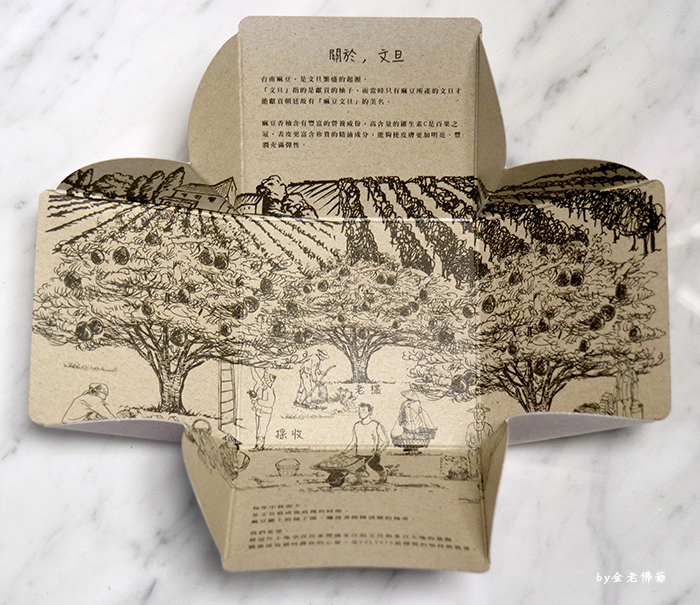 關於，文旦
台南麻豆，是文旦繁盛的起源。
「文旦」指的是獻貢的柚子，而當時只有麻豆所產的文旦才
能獻貢朝廷故有「麻豆文旦」的美名。
麻豆香柚含有豐富的營養成份，高含量的維生素C是百果之
冠，表皮更富含珍貴的精油成分，能夠使皮膚更加明亮、豐
潤充滿彈性。
老欉
採收
每年中秋前夕，
by金老佛爺